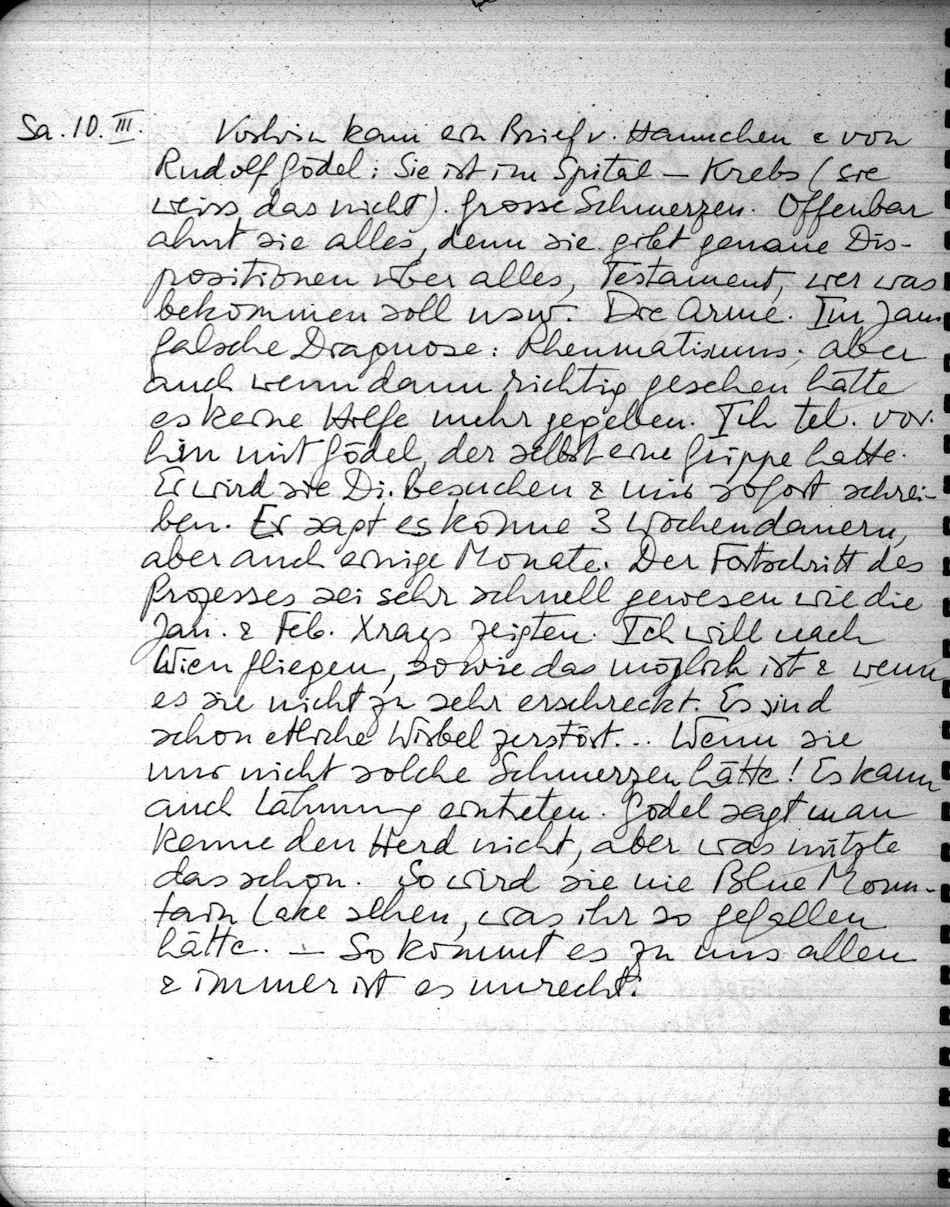 Sa. 10. III. Vorhin kam ein Brief v. Hannchen & von
Rudolf Gödel: Sie ist im Spital – Krebs (sie
weiss das nicht). Grosse Schmerzen. Offenbar
ahnt sie alles, denn sie gibt genaue Dis-
positionen über alles, Testament, wer was
bekommen soll usw. Die Arme. Im Jan.
falsche Diagnose: Rheumatismus; aber
auch wenn dann richtig gesehen hätte
es keine Hilfe mehr gegeben. Ich tel. vor-
hin mit Gödel, der selbst eine Grippe hatte.
Er wird sie Di. besuchen & mir sofort schrei-
ben. Er sagt es könne 3 Wochen dauern,
aber auch einige Monate. Der Fortschritt des
Prozesses sei sehr schnell gewesen wie die
Jan. & Feb. Xrays zeigten. Ich will nach
Wien fliegen, sowie das möglich ist & wenn
es sie nicht zu sehr erschreckt. Es sind
schon etliche Wirbel zerstört... Wenn sie
nur nicht solche Schmerzen hätte! Es kann
auch Lähmung eintreten. Gödel sagt man
kenne den Herd nicht, aber was nützte
das schon. So wird sie nie Blue Moun-
tain Lake sehen, was ihr so gefallen
hätte. – So kommt es zu uns allen
& immer ist es unrecht.